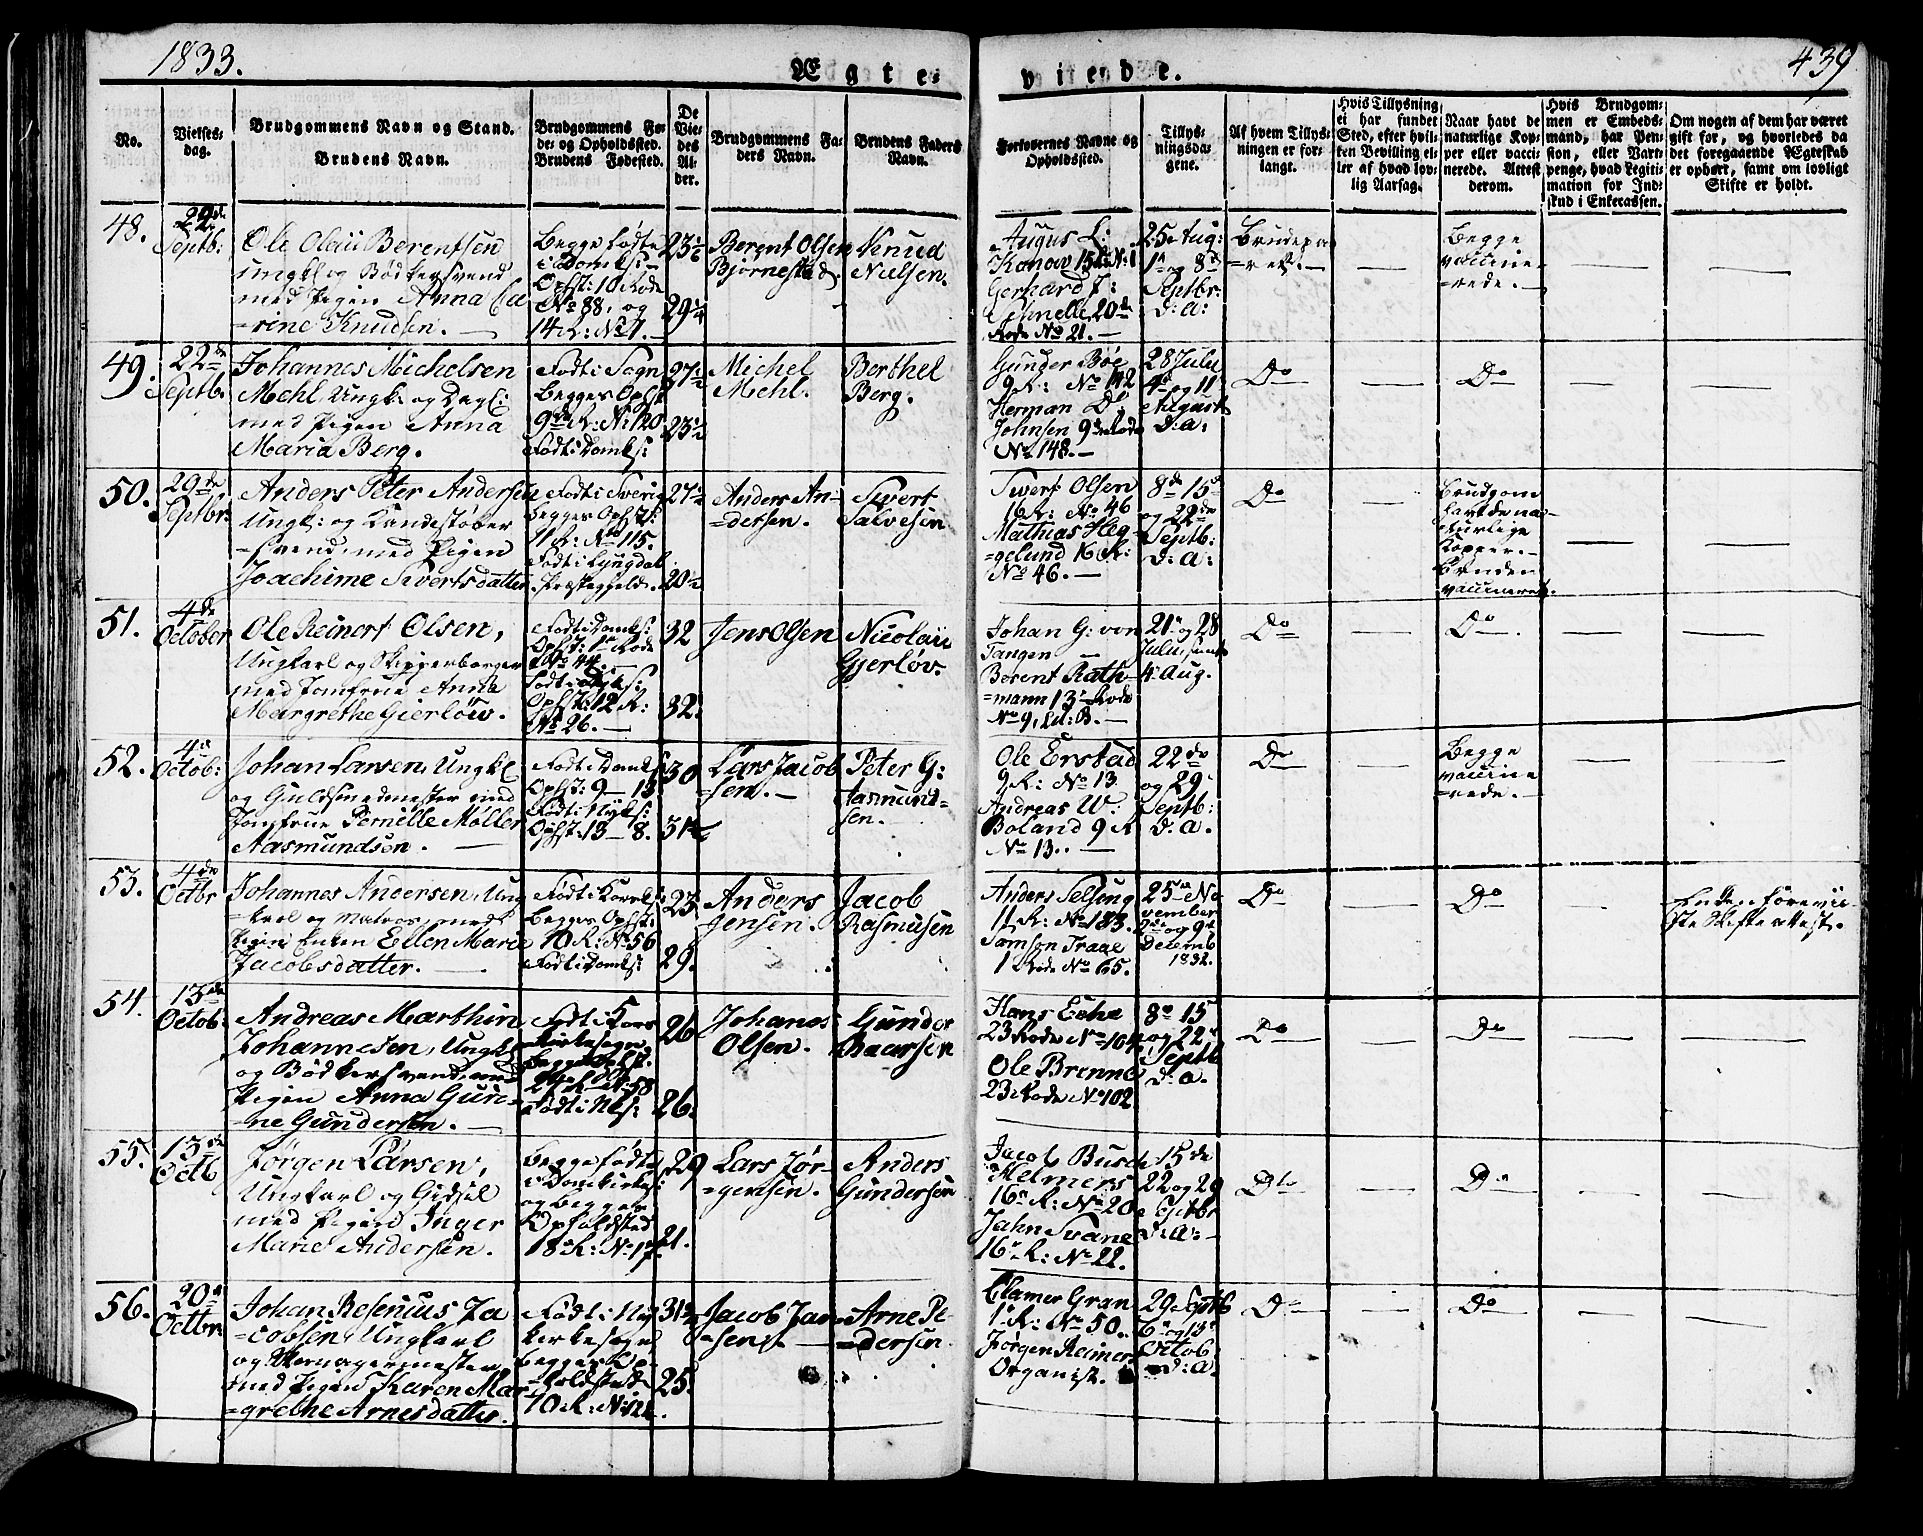 1833.
Ægte-
viende.
439
No.
Vielses-
dag.
Brudgommens Navn og Stand.
Brudens Navn.
Brudgommens Fø-
de- og Opholdssted.
Brudens Fødested.
De
Vie-
des
Al-
der.
Brudgommens Fa-
ders Navn.
Brudens Faders
Navn.
Forlovernes Navne og
Opholdssted.
Tillys-
ningsda-
gene.
Af hvem Tillys-
ningen er for-
langt.
Hvis Tillysning
ei har fundet
Sted, efter hvil-
ken Bevilling el-
ler af hvad lov-
lig Aarsag.
Naar havt de
naturlige Kop-
per eller vacci-
nerede. Attest
derom.
Hvis Brudgom-
men er Embeds-
mand, har Pen-
sion, eller Vart-
penge, hvad Legiti-
mation for Ind-
skud i Enkecassen.
Om nogen af dem har været
gift før, og hvorledes da
det foregaaende Ægteskab
er ophørt, samt om lovligt
Skifte er holdt.
48.
22de
Septb:
Ole Olaii Berentsen
ungk. og Bødkersvend
med Pigen Anna Ca
=rine Knudsen. —
Begge fødte
i Domks: –
Opst: 10 Rode
No 88, og
14 R: No 1. –
23½
29¼
Berent Olsen
Bjørnestad.
Knud
Nielsen.
August L:
Konow 15de R: No: 1
Gerhard J:
20de
Rode No 21. —
25 Aug:
1d og 8d
Septbr:
d: a:
Brudepa
=ret. —
Begge
vaccine
=rede. —
49.
22de
Septb.
Johannes Michelsen
Mehl Ungk: og Dagl:
med Pigen Anna
Maria Berg.
Født i Sogn
Begges Opst
9de R: No: 120
Født i Domks:
27½
23½
Michel
Mehl.
Berthel
Berg.
Gunder Bøe
9 R: No 142
Herman D:
Johnsen 9de Rode
No 148. —
28 Julii
4d og 11
August
d: a:
Do
Do
50.
29de
Septbr:
Anders Peter Andersen
Ungk: og Kandestøber
=svend, med Pigen
Joachime Sivertsdatter
Født i Sverig
Begges Opst:
11 R: No 115.
Født i Lyngdal
Præstegjeld.
27½
20½
Anders An-
=dersen.
Sivert
Salvesen
Sivert Olsen
16 R: No 46
Mathias Heg-
=gelund 16 R:
No 46. —
8de 15d
og 22de
Septb:
d: a:
Do
Brudgom
havt de na-
turlige
Kopper. –
Bruden
vaccineret.
51.
4de
October
Ole Reinert Olsen,
Ungkarl og Skippenborger
med Jomfrue Anna
Margrethe Gierlöw.
Født i Domks:
Opst: 1 Rode
No 44. —
Født i Nyks:
Opst: 12 R:
No 26. —
32
32.
Jens Olsen
Nicolaii
Gjerløv.
Johan G: von
Tangen —
Berent Rath-
=mann 13 Rode
No 9, Lit: B. —
21 og 28
Julii, samt
4 Aug.
Do
Do.
52.
4d
Octob:
Johan Larsen, Ungkl
og Guldsmedmester med
Jomfrue Pernille Møller
Aasmundsen. —
Født i Domks:
Opst: 9 – 13
Født i Nyks:
Opst: 13 – 8.
30
31½
Lars Jacob
=sen. —
Peter G:
Aasmund=
sen.
Ole Erstad
9 R: No 13
Andreas W:
Boland 9 R
No 13. —
22de
og 29
Septb:
d: a.
Do
Begge
vaccine
=rede. —
53.
4de
Octbr
Johannes Andersen, Ung
=karl og Matros, med
Pigen Enken Ellen Marie
Jacobsdatter. —
Født i Korsk:
Begges Opst:
10 R: No 56
Født i Domks:
23
29.
Anders
Jensen.
Jacob
Rasmusen
Anders Selseng
11 R: No 183.
Samson Traae
1 Rode No 65.
25de No
vember
2d og 9d
Decemb
1832.
Do
Do
Enken forevii
ste Skifteattest.
54.
13de
Octob:
Andreas Marthin
Johannesen, Ungk
og Bødkersvend, med
Pigen Anna Guri-
=ne Gundersen. —
Født i Kors
Kirkesogn,
Begges Opst.
24 R: No: 58
Født i Nks:
26
26.
Johanes
Olsen.
Gunder
Baarsen
Hans Eche
23 Rode No 104
Ole Brenne
23 Rode No 102
8de 15
og 22d
Septb
d: a.
Do
Do
55.
13de
Octb
Jørgen Larsen,
Ungkarl og Gjdsel
med Pigen Inger
Marie Andersen.
Begge fødte
i Domkirkes:
og begges
Opholdsted
18 R: No 17.
29
21.
Lars Jør-
=gensen.
Anders
Gundersen
Jacob Busch
Helmers
16 R: No 20
Jahn Svane
16 R: No 22.
15de
22 og 29
Septbr
d: a: –
Do
Do
56.
20d
Octbr:
Johan Resenius Ja
=cobsen, Ungkarl
med Pigen Karen Mar
=grethe Arnesdatter.
Født i Ny
kirkesogn
begges Op-
=holdsted
10 R: No: 121.
31½
25.
Jacob Jan-
=sen. —
Arne Pe-
=dersen.
Clamer Gran
1 R: No 50.
Jørgen Reimers
Organist.
29 Septb
6d og 13d
Octob
d: a.
Do
Do